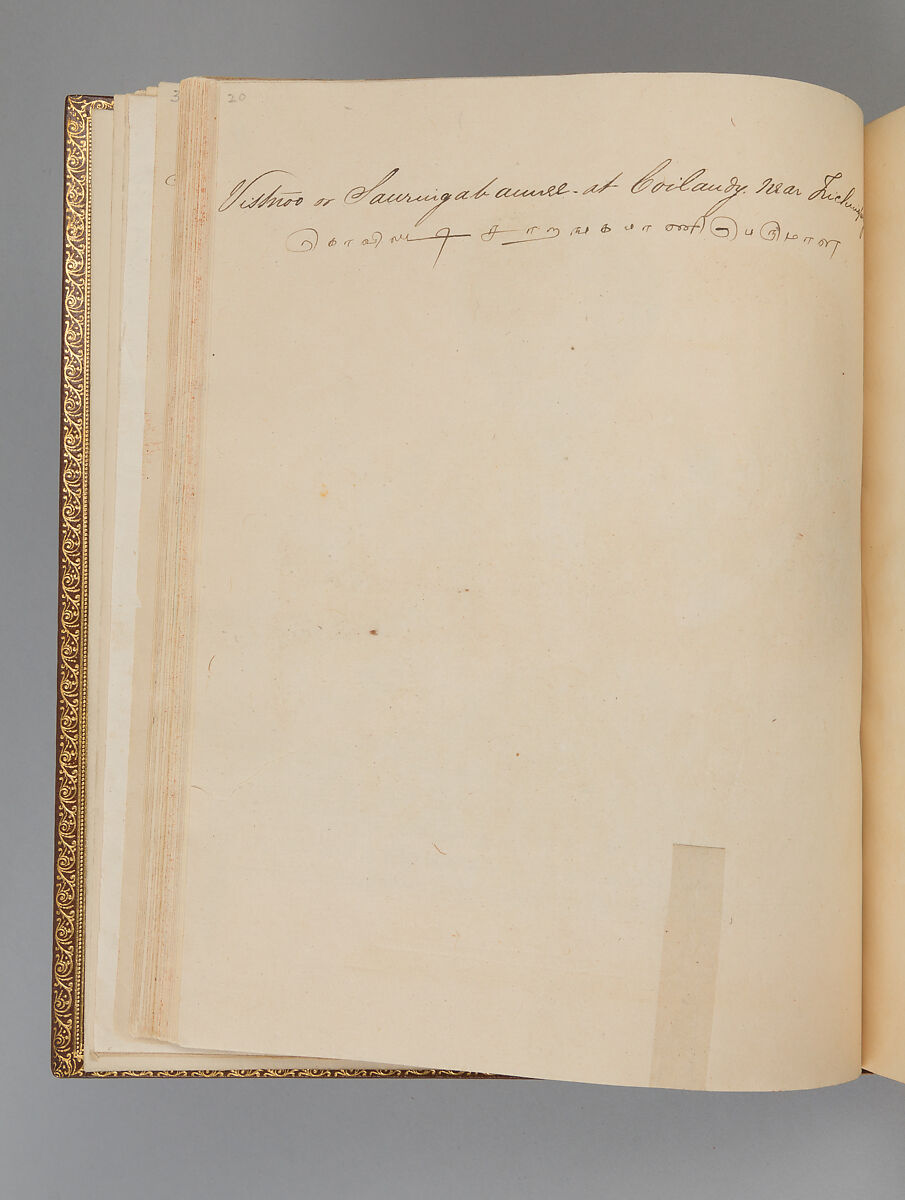 3 20
Vistnoo or Sauringabaunee - at Coilaudy. near
கொவிலடி சாறஙகபாணி பெருமாள